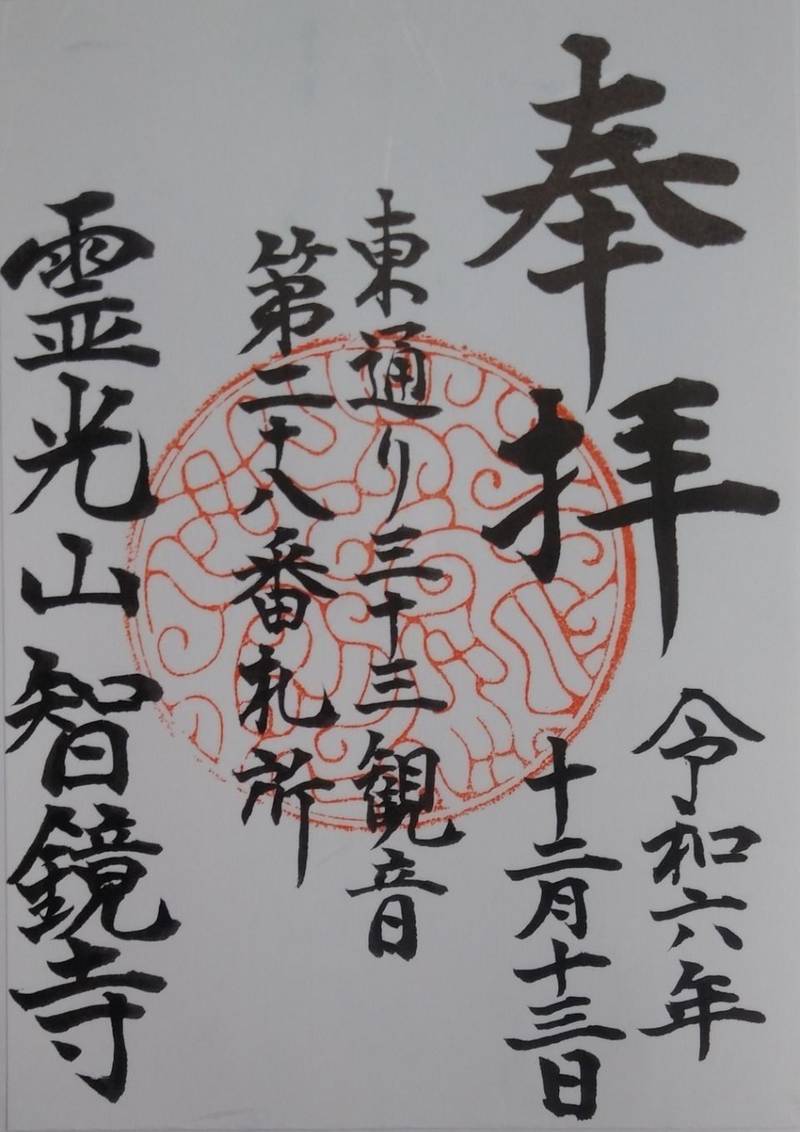 奉拝
令和六年
十二月十三日
東通り三十三観音
第二十八番札所
霊光山智鏡寺